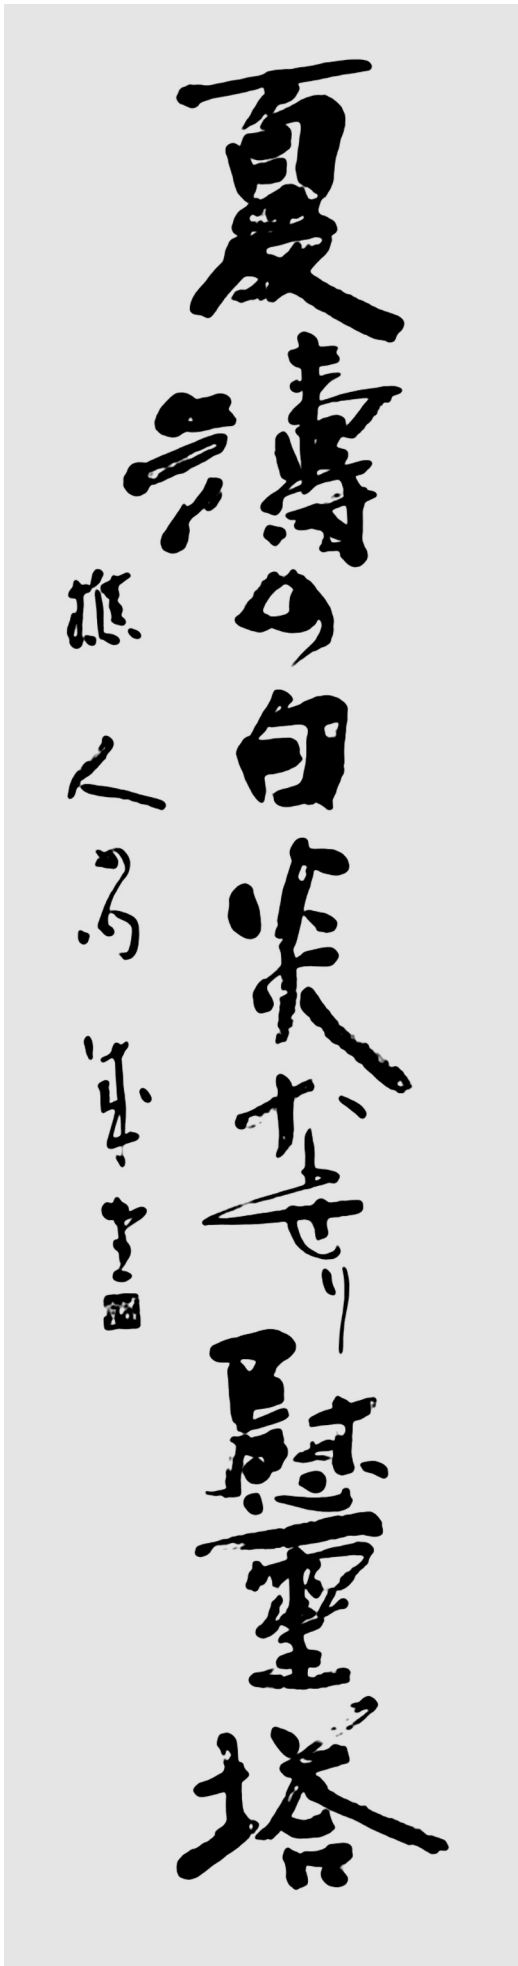 夏濤の白炎なせり慰霊塔
樵人の句